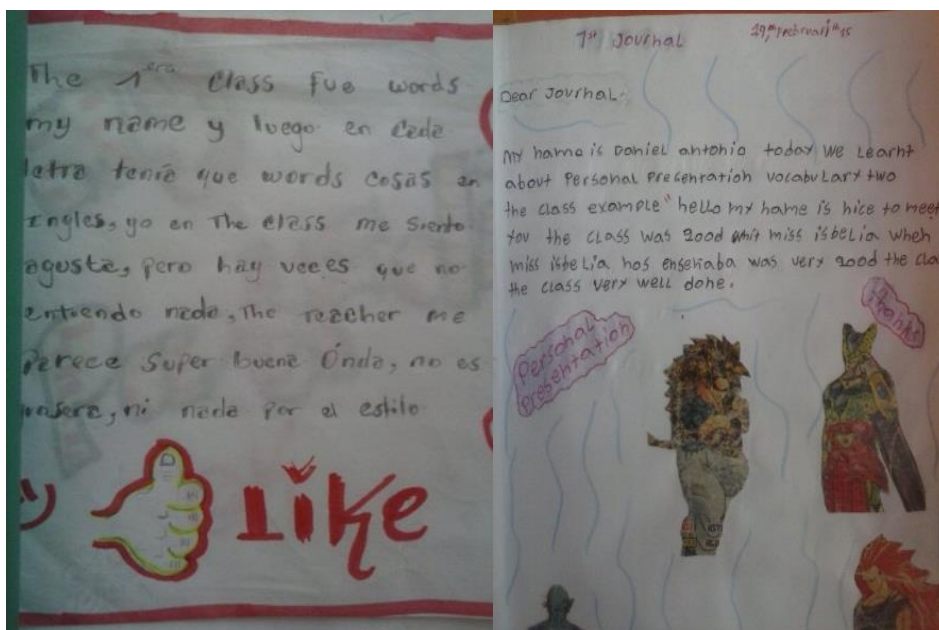 The 1era class fue words
my name y luego en cada
letra tenía que words cosas en
Ingles, yo en The class me siento
agusta, pero hay veces que no
entiendo nada, The teacher me
Parece super buena Onda, no es
ni nada por el estilo
Like
1st Journal
Dear Journal:
My name is Daniel antonio today we Learnt
about Personal Presentration vocabulary two
the class example" hello my name is nice to meet
you the class was good whit miss isbelia when
miss isbelia nos enseñaba was very good the cla
the class very well done.
Personal
Presentation
thanks